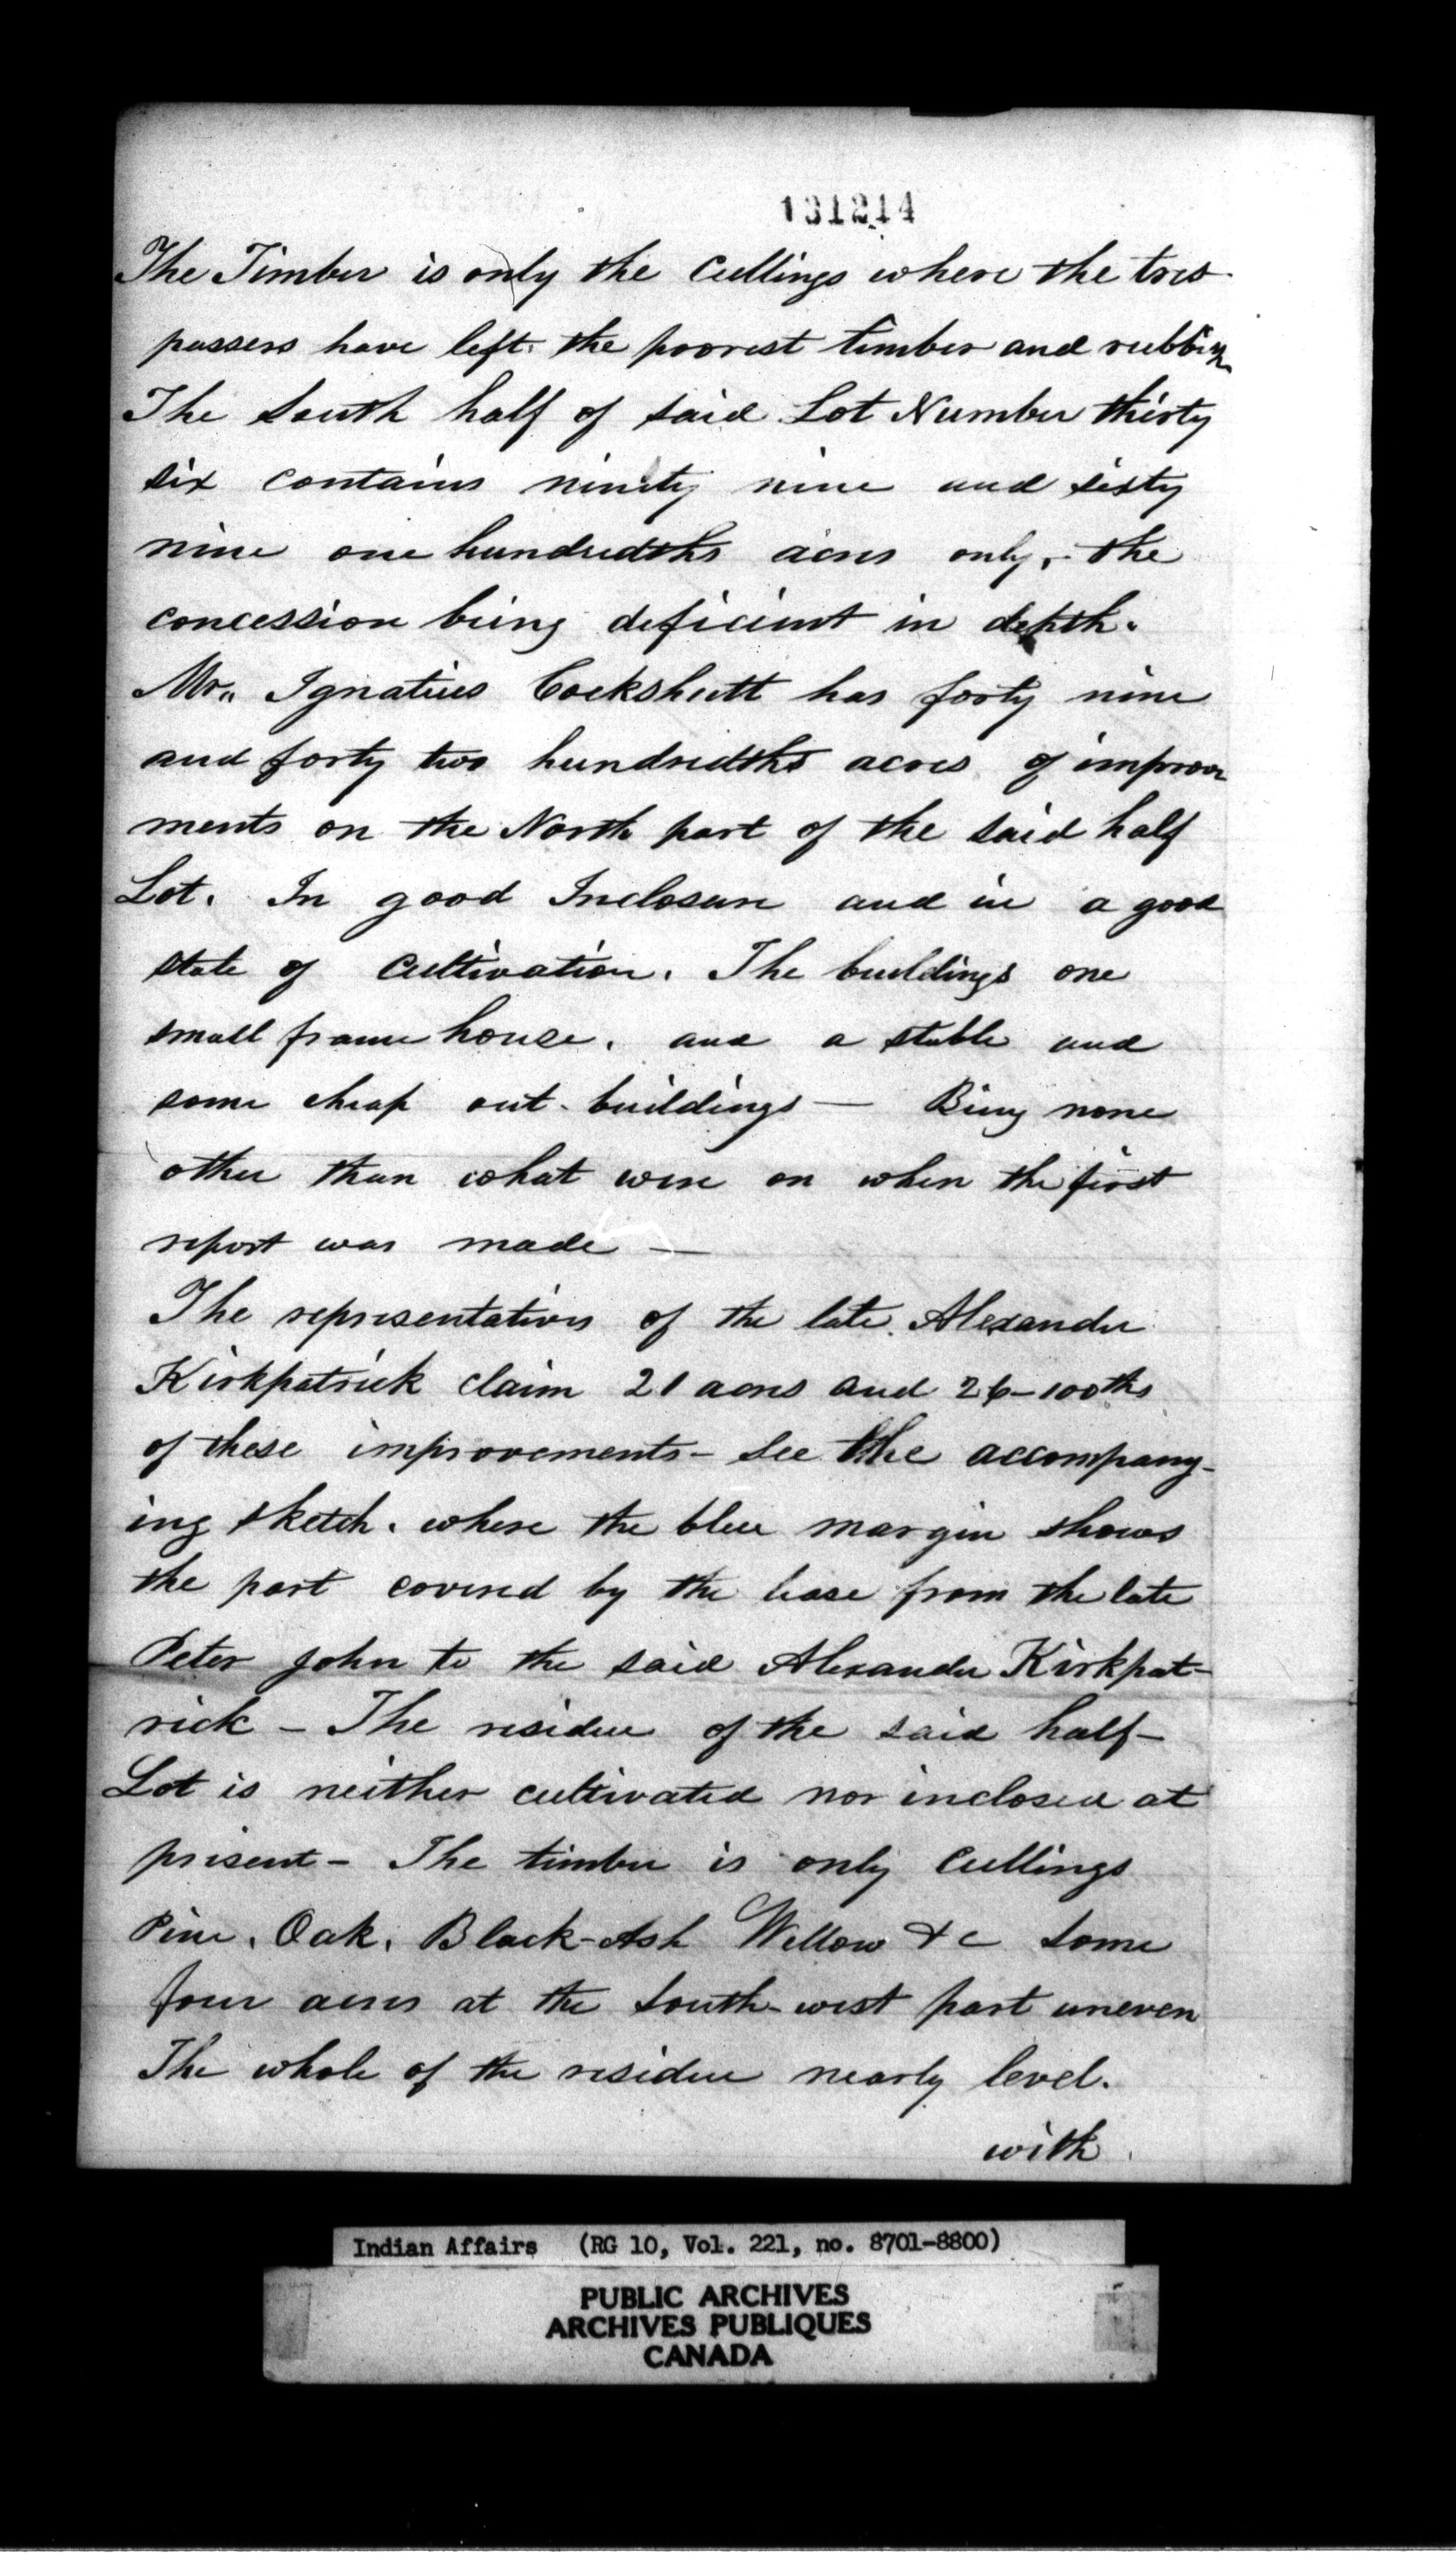 131214
The Timber is only the Cullings where the tres-
passers have left the poorest timber and rubbish
The South half of said Lot Number thirty
six contains ninety nine and sixty
nine one hundredths acres only, the
concession being deficient in depth.
Mr. Ignatius Cockshutt has forty nine
and forty two hundredths acres of improve
ments on the North part of the said half
Lot. In good Inclosure and in a good
state of Cultivation. The buildings one
small frame house. and a stable and
some cheap out-buildings — Being none
other than what were on when the first
report was made —
The representatives of the late Alexander
Kirkpatrick claim 21 acres and 26-100ths
of these improvements - See the accompany-
ing sketch. where the blue margin shows
the part covered by the lease from the late
Peter John to the said Alexander Kirkpat-
rick - The residue of the said half-
Lot is neither cultivated nor inclosed at
present - The timber is only Cullings
Pine, Oak, Black-Ash Willow &c Some
four acres at the South-west part uneven
The whole of the residue nearly level.
with
Indian Affairs (RG 10, Vol. 221, no. 8701-8800)
PUBLIC ARCHIVES
ARCHIVES PUBLIQUES
CANADA